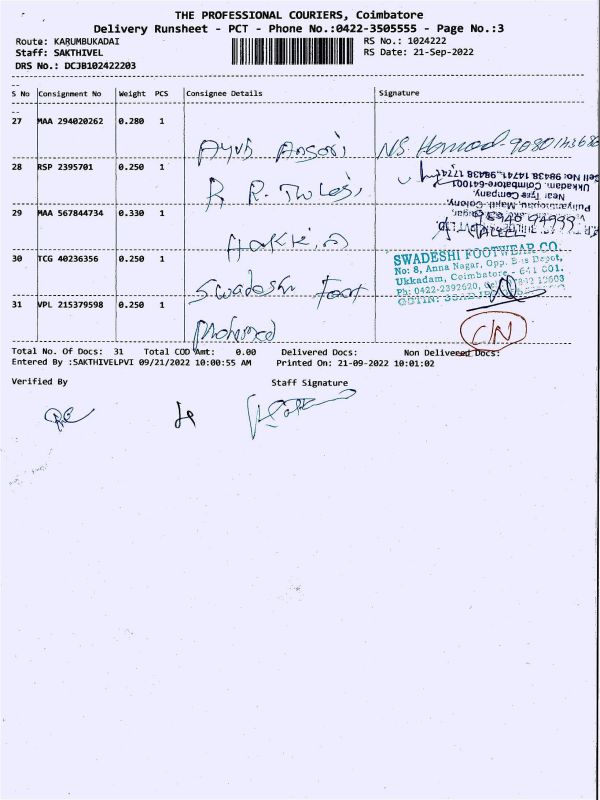 THE PROFESSIONAL COURIERS, Coimbatore
Delivery Runsheet - PCT - Phone No.:0422-3505555 - Page No.:3
Route: KARUMBUKADAI RS No.: 1024222
Staff: SAKTHIVEL RS Date: 21-Sep-2022
DRS No.: DCJB102422203
S No Consignment No Weight PCS Consignee Details Signature
27 MAA 294020262 0.280 1
Ayub Ansari NS. Hamad-
28 RSP 2395701 0.250 1
Cell No: 98438 14741, 98438 17741
Ukkadam, Coimbatore-641001.
R R. Thulasi
Near Tyre Company,
29 MAA 567844734 0.330 1
Hakki.
30 TCG 40236356 0.250 1
SWADESHI FOOTWEAR CO.
No: 8, Anna Nagar, Opp. Bus Depot,
Ukkadam, Coimbatore - 641 001.
Swadeshi Foot
Ph: 0422-2392620,
31 VPL 215379598 0.250 1
Mohamed C/N
Total No. Of Docs: 31 Total COD Amt: 0.00 Delivered Docs: Non Delivered Docs:
Entered By :SAKTHIVELPVI 09/21/2022 10:00:55 AM Printed On: 21-09-2022 10:01:02
Verified By Staff Signature